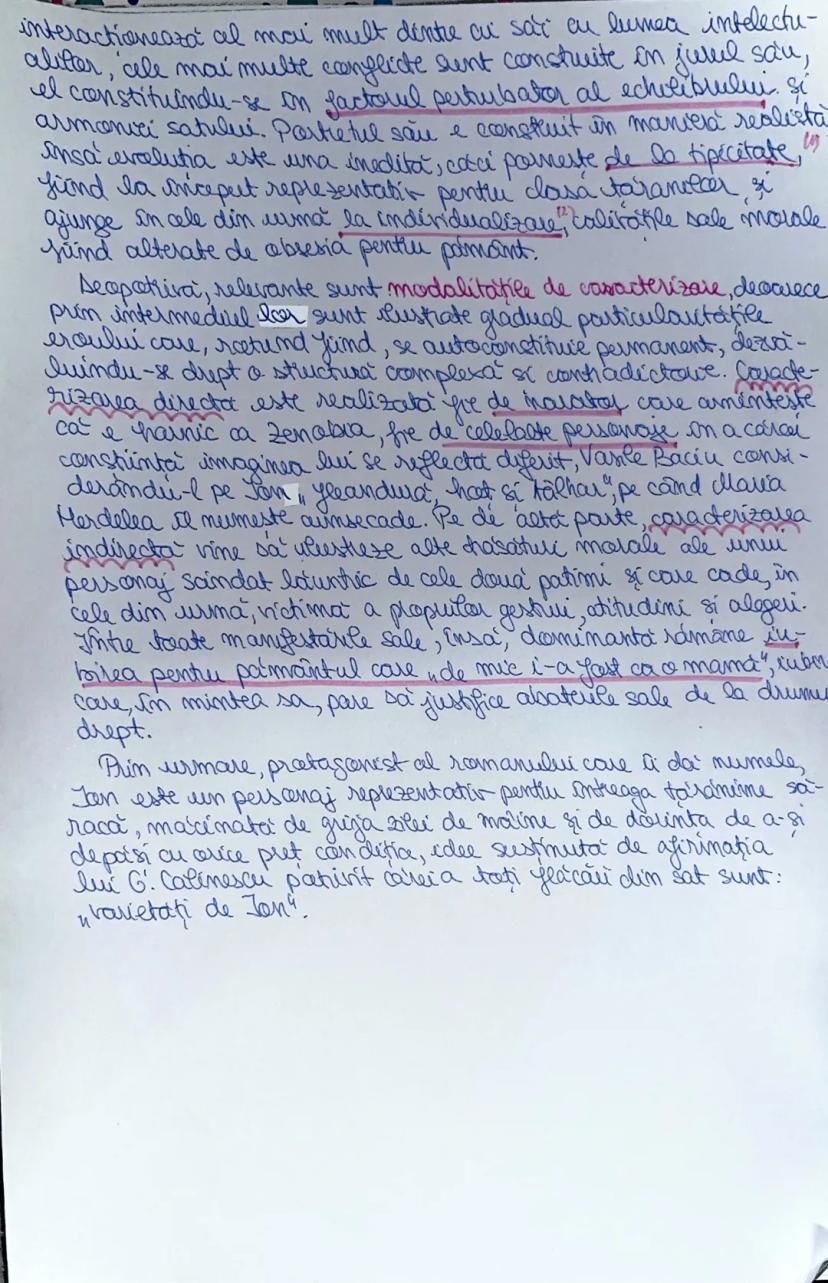 interacționează cel mai mult dintre cei săi cu lumea intelectu-
alilor, cele mai multe conflicte sunt construite în jurul său,
el constituindu-se în factorul perturbator al echilibrului și
armoniei satului. Portretul său e construit în manieră realistă
însă evoluția este una inedită, căci pornește de la tipicitate, (1)
fiind la început reprezentativ pentru clasa țăranilor și
ajunge în cele din urmă la individualizare (2), calitățile sale morale
fiind alterate de obsesia pentru pământ.
Deopotrivă, relevante sunt modalitățile de caracterizare, deoarece
prin intermediul lor sunt ilustrate gradual particularitățile
eroului care, rotund fiind, se autoconstituie permanent, dezvă-
luindu-se drept o structură complexă și contradictorie. Caracte-
rizarea directă este realizată fie de narator care amintește
că e harnic ca Zenobia, fie de celelalte personaje în a căror
conștiință imaginea lui se reflectă diferit, Vasile Baciu consi-
derându-l pe Ion „fleandură, hoț și tâlhar", pe când Maria
Herdelea îl numește cumsecade. Pe de altă parte, caracterizarea
indirectă vine să ilustreze alte trăsături morale ale unui
personaj scindat lăuntric de cele două patimi și care cade, în
cele din urmă, victimă a propriilor gesturi, atitudini și alegeri.
Între toate manifestările sale, însă, dominantă rămâne iu-
birea pentru pământul care „de mic i-a fost ca o mamă", iubire
care, în mintea sa, pare să justifice abaterile sale de la drumul
drept.
Prin urmare, protagonist al romanului care îi dă numele,
Ion este un personaj reprezentativ pentru întreaga țărănime să-
racă, măcinată de grija zilei de mâine și de dorința de a-și
depăși cu orice preț condiția, idee susținută de afirmația
lui G. Călinescu potrivit căreia toți flăcăii din sat sunt:
„varietăți de Ion".